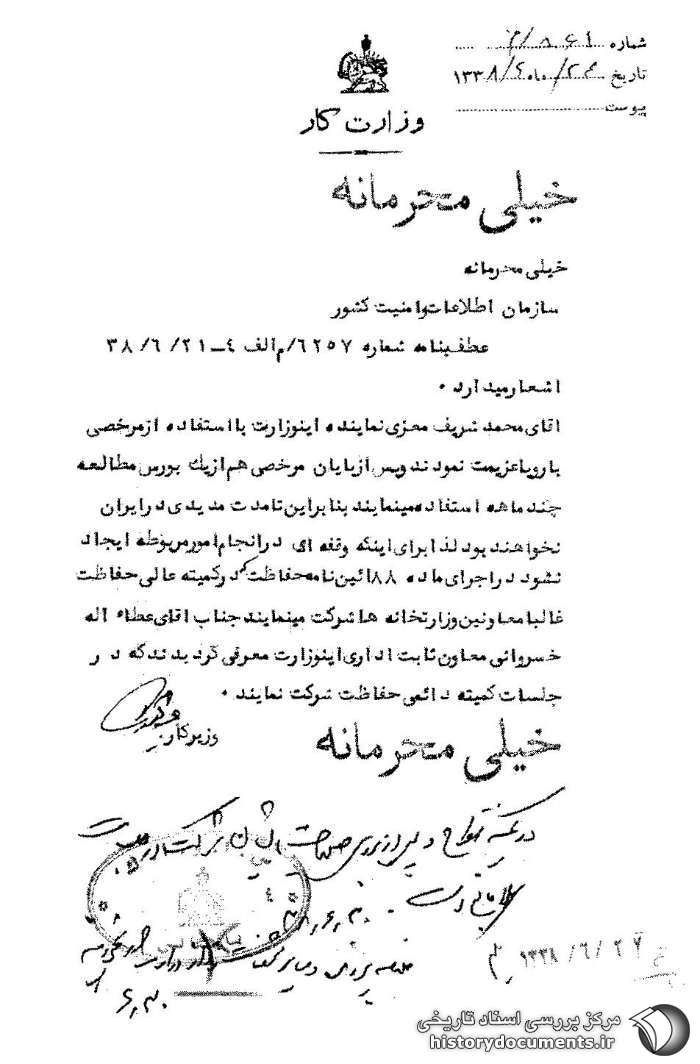 شماره
تاریخ ۱۳۳۸/
پیوست
وزارت کار
خیلی محرمانه
خیلی محرمانه
سازمان اطلاعات وامنیت کشور
عطف بنامه شماره ۶۲۵۷/م الف ۴ــ۲۱/ ۶/ ۳۸
اشعار میدارد .
آقای محمد شریف معزی نماینده اینوزارت با استفاده از مرخصی
باروپا عزیمت نمودند و پس از پایان مرخصی هم از یك بورس مطالعه
چند ماهه استفاده مینمایند بنابراین تا مدت مدیدی در ایران
نخواهند بود لذا برای اینکه وقفه ای در انجام امور مربوطه ایجاد
نشود در اجرای ماده ۸۸ آئین نامه حفاظت که در کمیته عالی حفاظت
غالبا معاونین وزارتخانه ها شرکت مینمایند جناب آقای عطاء اله
خسروانی معاون ثابت اداری اینوزارت معرفی گردیدند که در
جلسات کمیته دائمی حفاظت شرکت نمایند .
وزیر کار
خیلی محرمانه
۳۸/۶/۳۰
۱۳۳۸/۶/۲۶
۶/۳۰
مرکز بررسی اسناد تاریخی
historydocuments.ir